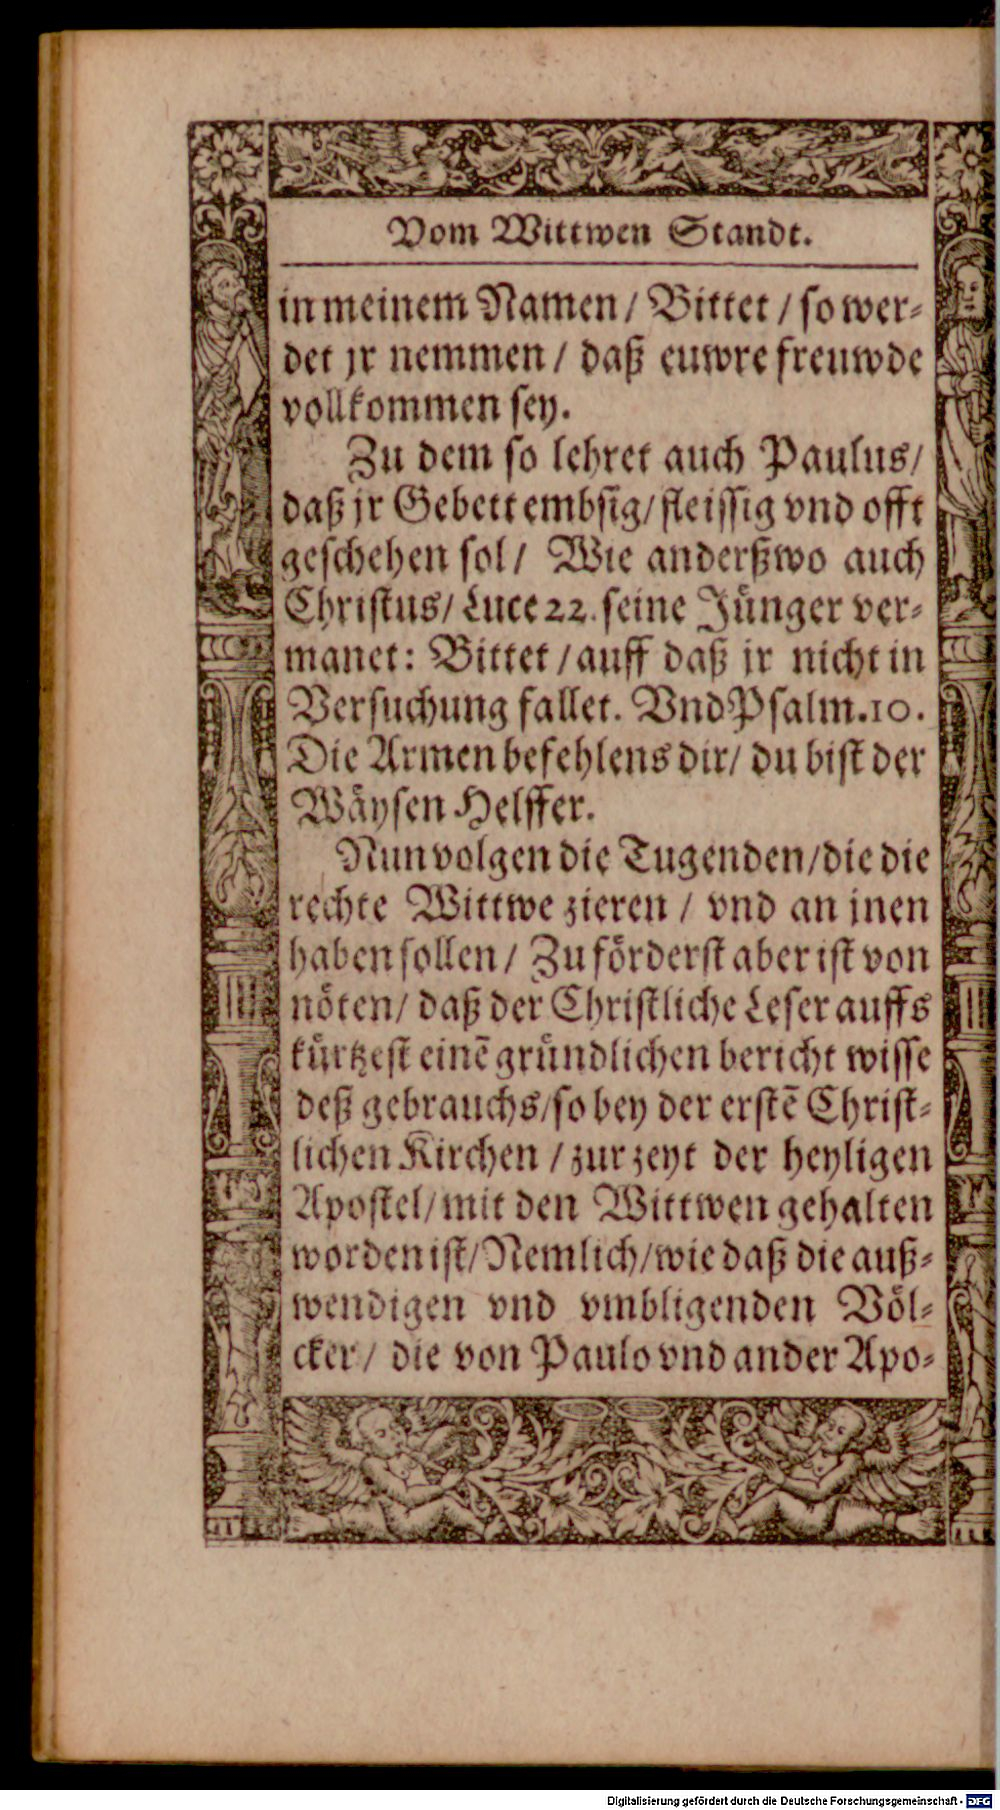 Vom Wittwen Standt.
in meinem Namen / Bittet / so wer⸗
det jr nemmen / daß euwre freuwde
vollkommen sey.
Zu dem so lehret auch Paulus/
daß jr Gebett embsig/ fleissig vnd offt
geschehen sol / Wie anderßwo auch
Christus/ Luce 22. seine Jünger ver⸗
manet: Bittet / auff daß jr nicht in
Versuchung fallet. Vnd Psalm. 10.
Die Armen befehlens dir/ du bist der
Wäysen Helffer.
Nun volgen die Tugenden/die die
rechte Wittwe zieren / vnd an jnen
haben sollen / Zu förderst aber ist von
nöten/ daß der Christliche Leser auffs
kürtzest einē gründlichen bericht wisse
deß gebrauchs/so bey der erstē Christ⸗
lichen Kirchen / zur zeyt der heyligen
Apostel/ mit den Wittwen gehalten
worden ist/ Nemlich/ wie daß die auß⸗
wendigen vnd vmbligenden Völ⸗
cker / die von Paulo vnd ander Apo⸗
Digitalisierung gefördert durch die Deutsche Forschungsgemeinschaft - DFG